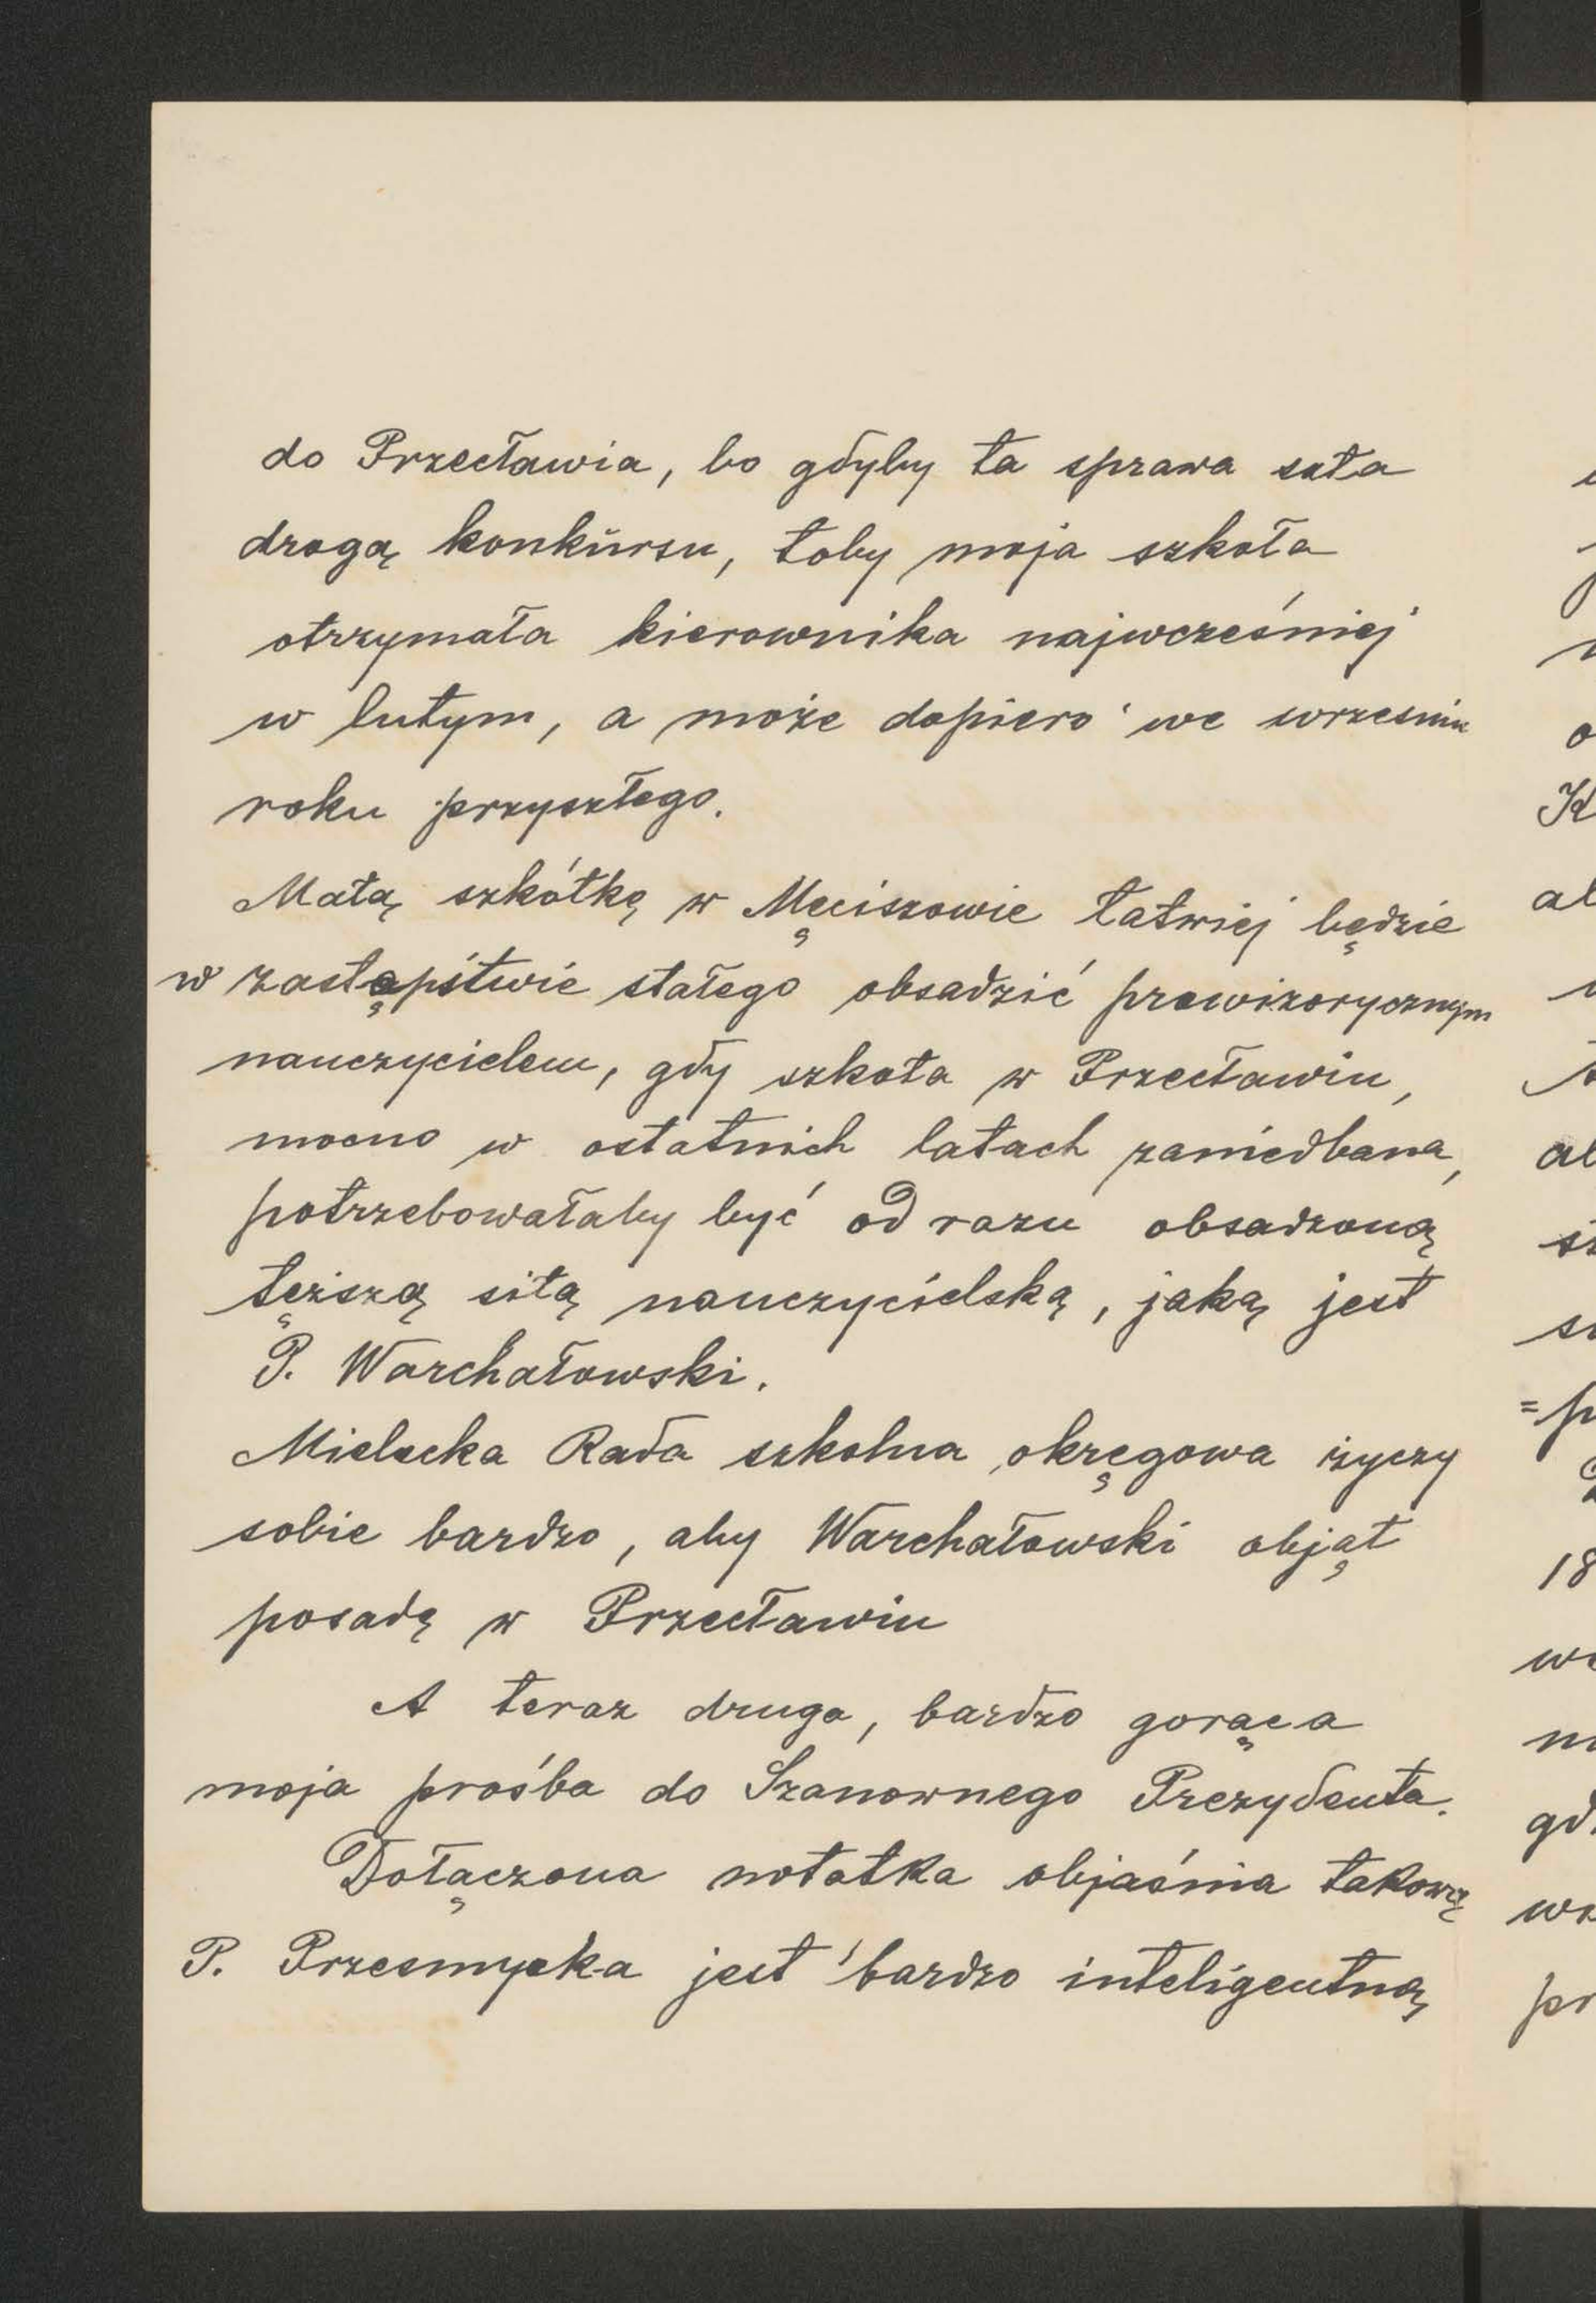 do Przecławia, bo gdyby ta sprawa szła
drogą konkursu, toby moja szkoła
otrzymała kierownika najwcześniej
w lutym, a może dopiero we wrzesniu
roku przyszłego.
Małą szkółkę w Męciszowie łatwiej będzie
w zastępstwie stałego obsadzić prowizorycznym
nauczycielem, gdy szkoła w Przecławiu,
mocno w ostatnich latach zaniedbana,
potrzebowałaby być od razu obsadzoną
tęższą siłą nauczycielską, jaką jest
P. Warchałowski.
Mielecka Rada szkolna okręgowa życzy
sobie bardzo, aby Warchałowski objął
posadę w Przecławiu
A teraz druga, bardzo gorąca
moja prośba do Szanownego Prezydenta.
Dołączona notatka objaśnia takową
P. Przesmycka jest bardzo inteligentną